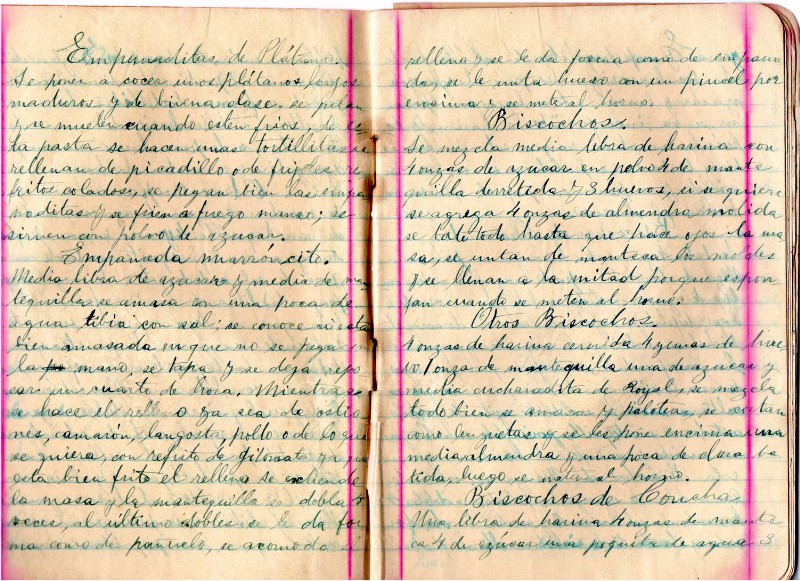 Empanaditas de Plátano.
Se ponen a cocer unos plátanos largos
maduros y de buena clase, se pelan
y se muelen cuando esten frios, de es-
ta pasta se hacen unas tortillitas se
rellenan de picadillo o de frijoles re
fritos colados, se pegan bien las empa
naditas y se frien a fuego manso; se
sirven con polvo de azucar.
Empanada murróncito.
Media libra de azucar y media de man
tequilla se amasa con una poca de
agua tibia con sal; se conoce si esta
bien amasada en que no se pega en
la mano, se tapa y se deja repo
sar un cuarto de hora. Mientras
se hace el relleno ya sea de ostio
nes, camarón, langosta, pollo o de lo que
se quiera, con refrito de ya que
esta bien frito el relleno se extiende
la masa y la mantequilla se dobla
veces, al último dobles se le da for
ma como de pañuelo, se acomoda el
relleno y se le da forma como de empana
da, se le unta huevo con un pincel por
encima y se mete al horno.
Biscochos.
Se mezcla media libra de harina con
4 onzas de azucar en polvo 4 de mante
quilla derretida y 3 huevos, si se quiere
se agrega 4 onzas de almendra molida
se bate todo hasta que hace ojos la ma
sa, se untan de manteca los moldes
y se llenan a la mitad porque espon
jan cuando se meten al horno.
Otros Biscochos.
4 onzas de harina cernida 4 yemas de hue
vo 1 onza de mantequilla una de azucar y
media cucharadita de Royal, se mezcla
todo bien se amasa y palotea, se cortan
como lenguetas y se les pone encima una
media almendra y una poca de clara ba
tida, luego se meten al horno.
Biscochos de Concha
Una libra de harina 4 onzas de mante
ca 4 de azúcar una poquita de agua 3